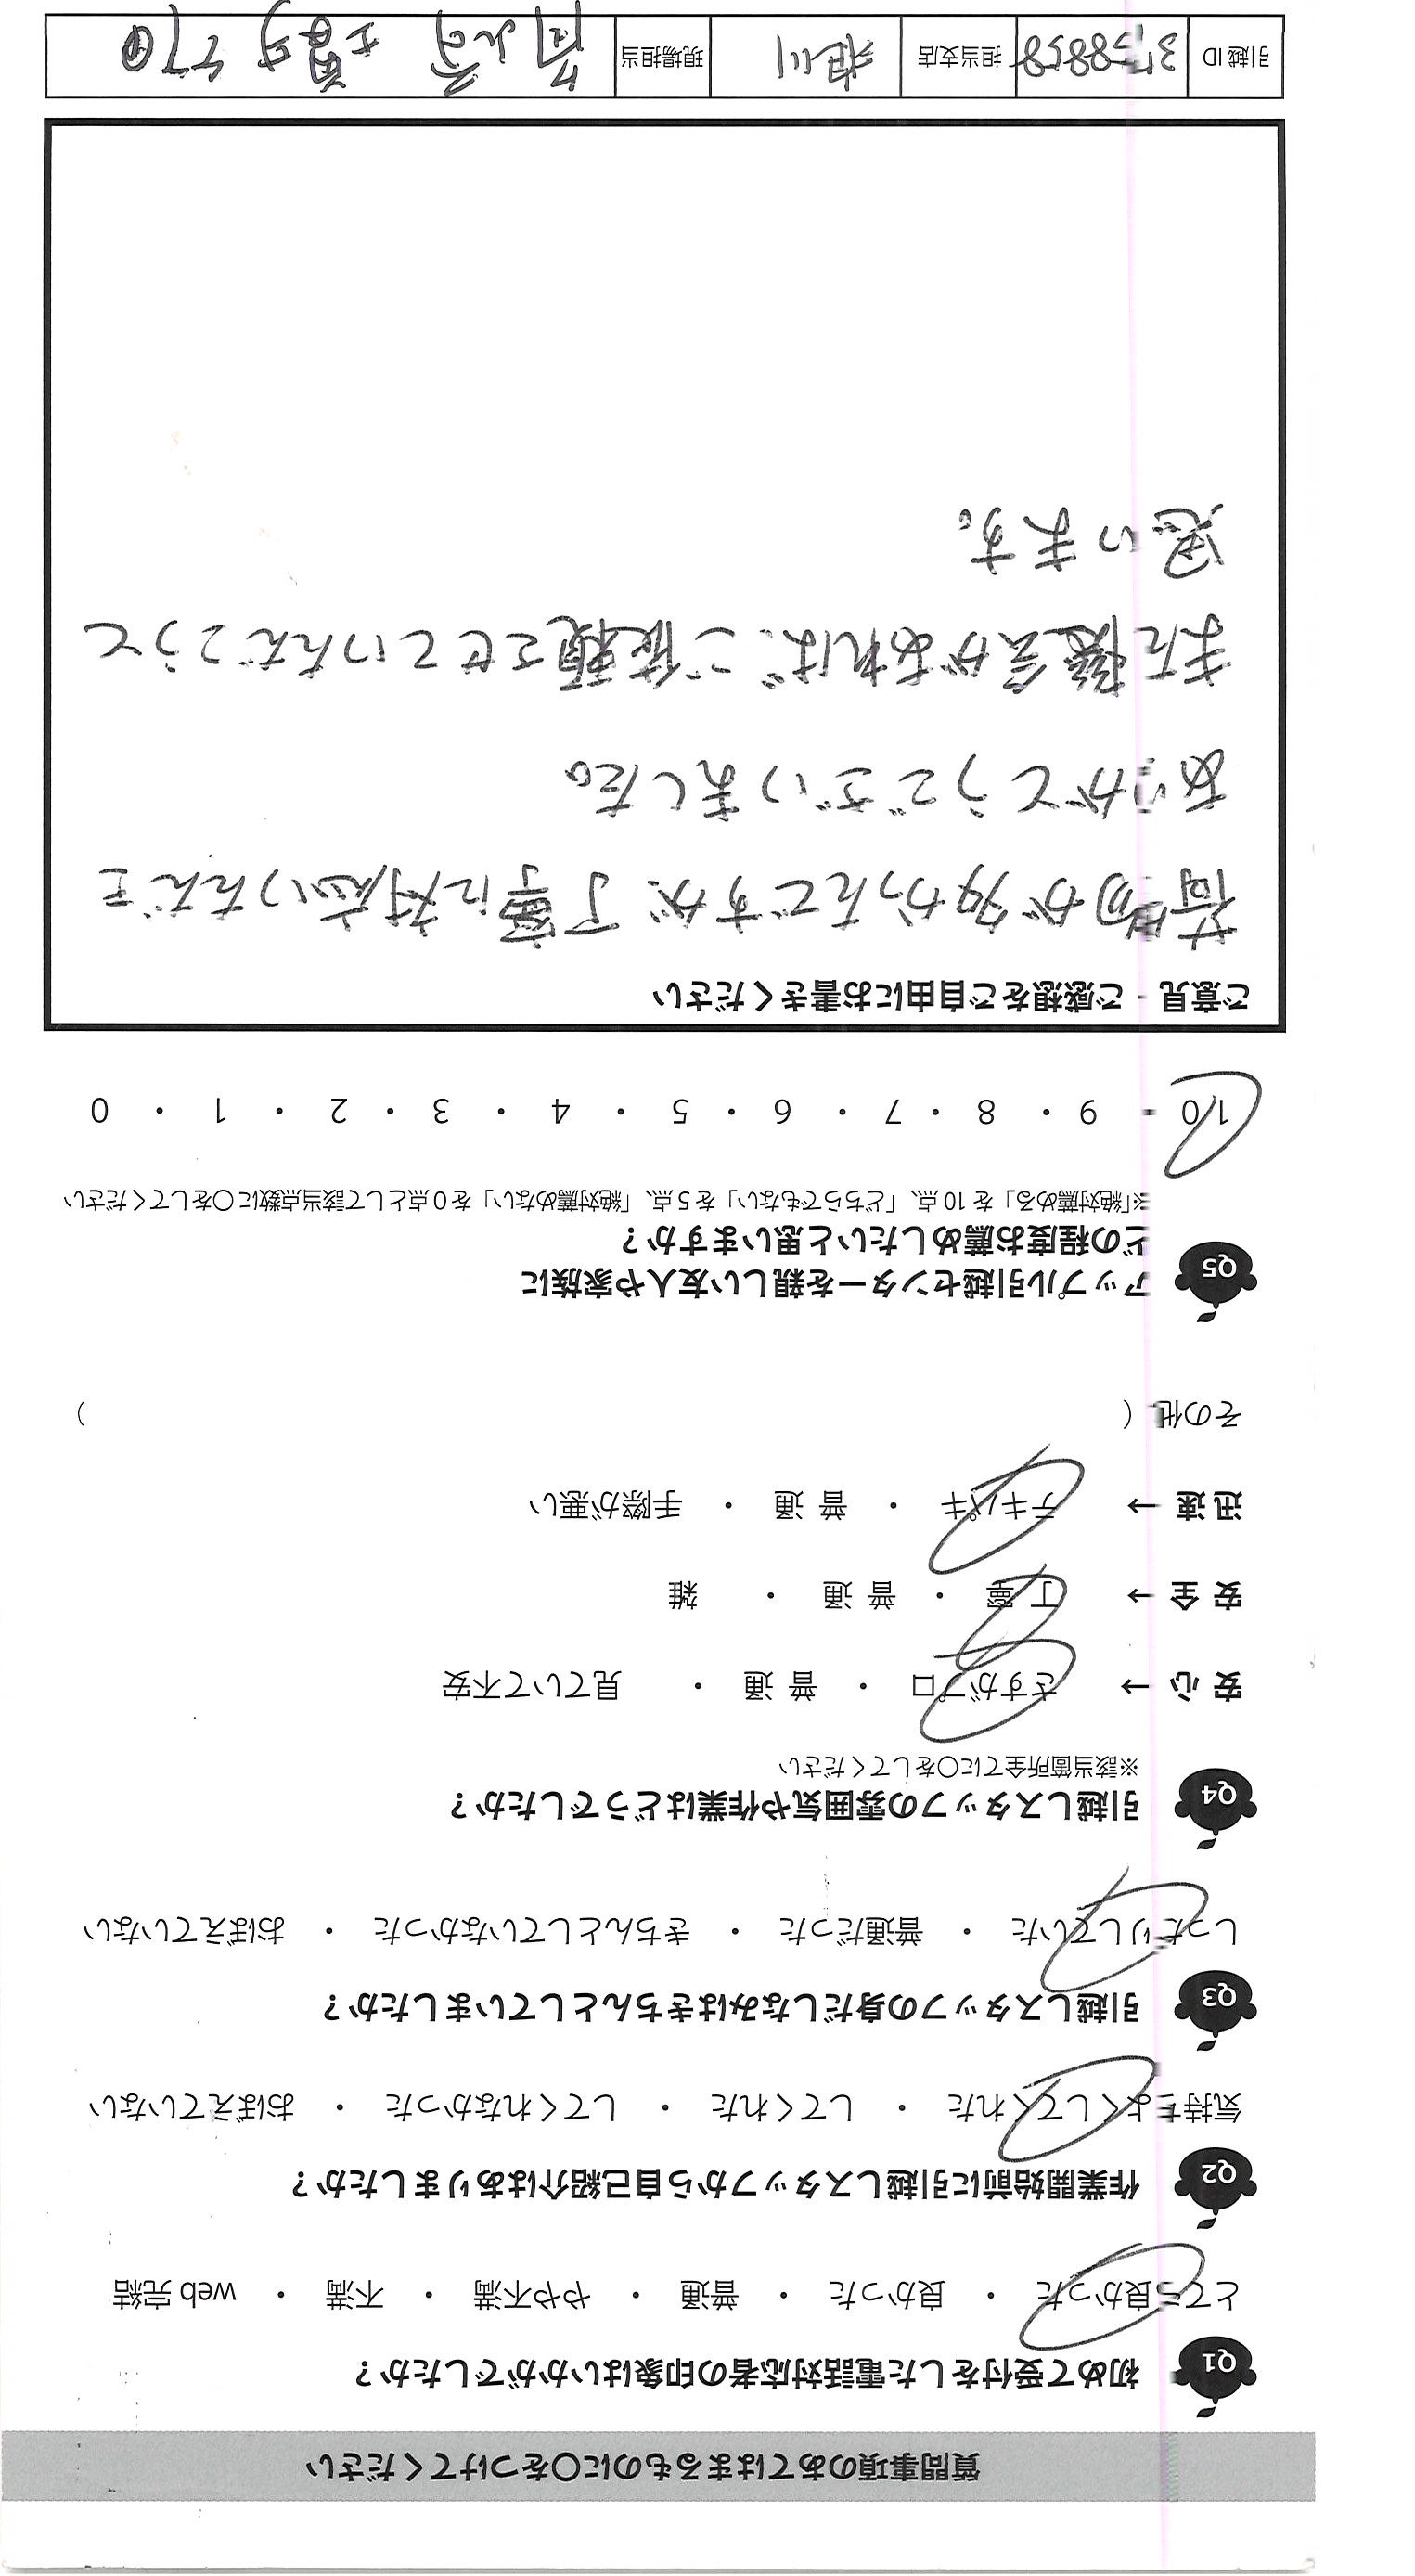 質問事項のあてはまるものに○をつけてください
Q1 初めて受付をした電話対応者の印象はいかがでしたか？
とても良かった ・ 良かった ・ 普通 ・ やや不満 ・ 不満 ・ web完結
Q2 作業開始前に引越しスタッフから自己紹介はありましたか？
気持ちよくしてくれた ・ してくれた ・ してくれなかった ・ おぼえていない
Q3 引越しスタッフの身だしなみはきちんとしていましたか？
しっかりしていた ・ 普通だった ・ きちんとしていなかった ・ おぼえていない
Q4 引越しスタッフの雰囲気や作業はどうでしたか？
※該当箇所全てに○をしてください
安心 → さすがプロ ・ 普通 ・ 見ていて不安
安全 → 丁寧 ・ 普通 ・ 雑
迅速 → テキパキ ・ 普通 ・ 手際が悪い
その他 ( )
Q5 アップル引越センターを親しい友人や家族に
どの程度お薦めしたいと思いますか？
※「絶対薦める」を10点、「どちらでもない」を5点、「絶対薦めない」を0点として該当点数に○をしてください
10 ・ 9 ・ 8 ・ 7 ・ 6 ・ 5 ・ 4 ・ 3 ・ 2 ・ 1 ・ 0
ご意見・ご感想をご自由にお書きください
荷物が多かんですが、丁寧に対応いただき
ありがとうございました。
また機会があれば、ご依頼させていただこうと
思います。
引越ID 担当支店 旭川 現場担当